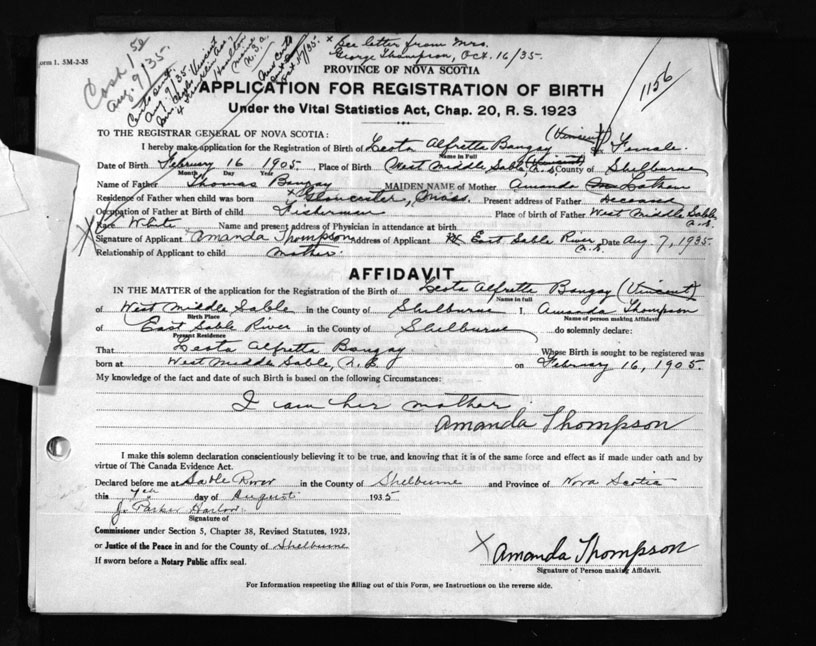 Form 1. 5M-2-35
Cash 1 50
Aug. 9/35.
Certs sent
Aug. 9/35.
See letter from Mrs.
George Thompson, Oct. 16/35.
1156
PROVINCE OF NOVA SCOTIA
APPLICATION FOR REGISTRATION OF BIRTH
Under the Vital Statistics Act, Chap. 20, R. S. 1923
TO THE REGISTRAR GENERAL OF NOVA SCOTIA:
I hereby make application for the Registration of Birth of Leota Alfretta Bangay (Vincent) Female.
Name in Full
Date of Birth February 16 1905. Place of Birth West Middle Sable, N.S. County of Shelburne
Month Day Year
Name of Father Thomas Bangay MAIDEN NAME of Mother Amanda
Residence of Father when child was born Gloucester, Mass. Present address of Father deceased
Occupation of Father at Birth of child Fisherman Place of birth of Father West Middle Sable N.S.
Race White Name and present address of Physician in attendance at birth
Signature of Applicant Amanda Thompson Address of Applicant East Sable River N.S. Date Aug. 7, 1935.
Relationship of Applicant to child mother.
AFFIDAVIT
IN THE MATTER of the application for Registration of the Birth of Leota Alfretta Bangay (Vincent)
Name in full
of West Middle Sable in the County of Shelburne I, Amanda Thompson
Birth Place Name of person making Affidavit
of East Sable River in the County of Shelburne do solemnly declare:
Present Residence
That Leota Alfretta Bangay Whose Birth is sought to be registered was
born at West Middle Sable, N.S. on February 16, 1905.
My knowledge of the fact and date of such Birth is based on the following Circumstances:
I am her mother.
Amanda Thompson
I make this solemn declaration conscientiously believing it to be true, and knowing that it is of the same force and effect as if made under oath and by
virtue of The Canada Evidence Act.
Declared before me at Sable River in the County of Shelburne and Province of Nova Scotia
this 7th day of August 1935
J. Parker Harlow
Signature of
Commissioner under Section 5, Chapter 38, Revised Statutes, 1923,
or Justice of the Peace in and for the County of Shelburne
If sworn before a Notary Public affix seal.
X Amanda Thompson
Signature of Person making Affidavit.
For Information respecting the filling out of this Form, see Instructions on the reverse side.